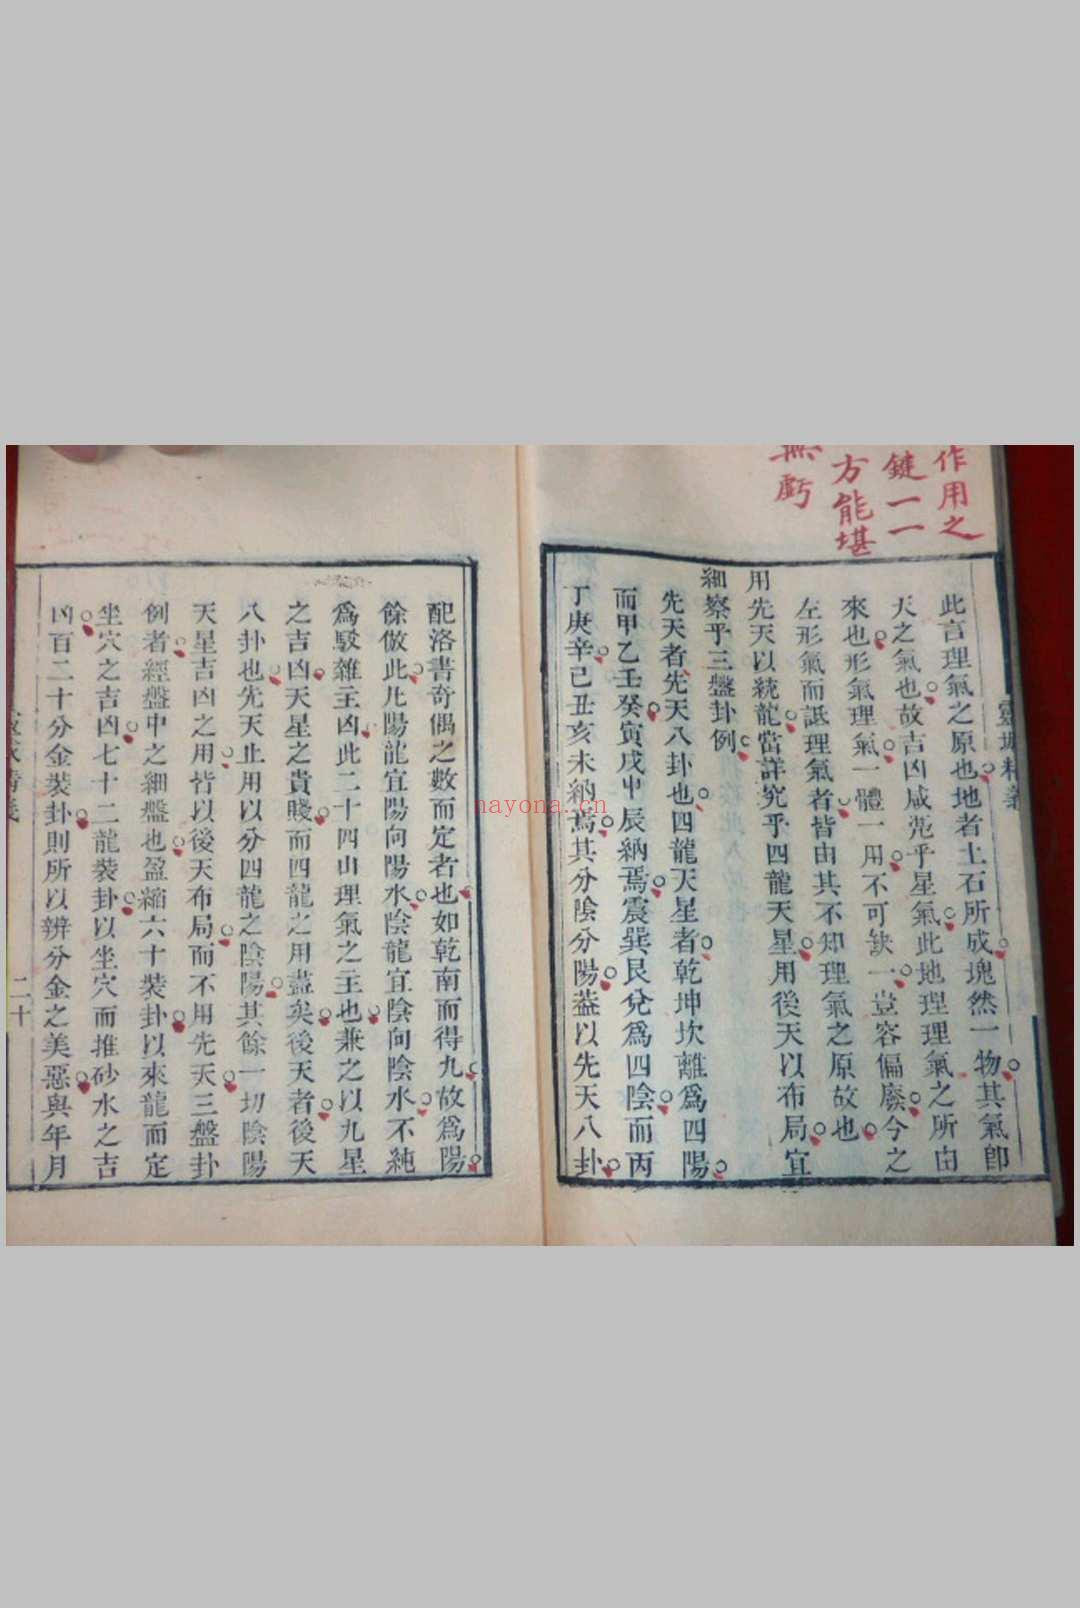 作用之
鍵一一
方能堪
無虧
靈城精義
此言理氣之原也地者土石所成塊然一物其氣卽
天之氣也故吉凶咸兆乎星氣此地理理氣之所由
來也形氣理氣一體一用不可缺一豈容偏廢今之
左形氣而詆理氣者皆由其不知理氣之原故也
用先天以統龍當詳究乎四龍天星用後天以布局宜
細察乎三盤卦例
先天者先天八卦也四龍天星者乾坤坎離爲四陽
而甲乙壬癸寅戌申辰納焉震巽艮兌爲四陰而丙
丁庚辛己丑亥未納焉其分陰分陽葢以先天八卦
配洛書奇偶之數而定者也如乾南而得九故爲陽
餘倣此凡陽龍宜陽向陽水陰龍宜陰向陰水不純
爲駁雜主凶此二十四山理氣之主也兼之以九星
之吉凶天星之貴賤而四龍之用盡矣後天者後天
八卦也先天止用以分四龍之陰陽其餘一切陰陽
天星吉凶之用皆以後天布局而不用先天三盤卦
例者經盤中之細盤也盈縮六十裝卦以來龍而定
坐穴之吉凶七十二龍裝卦以坐穴而推砂水之吉
凶百二十分金裝卦則所以辨分金之美惡與年月
二十
nayona.cn